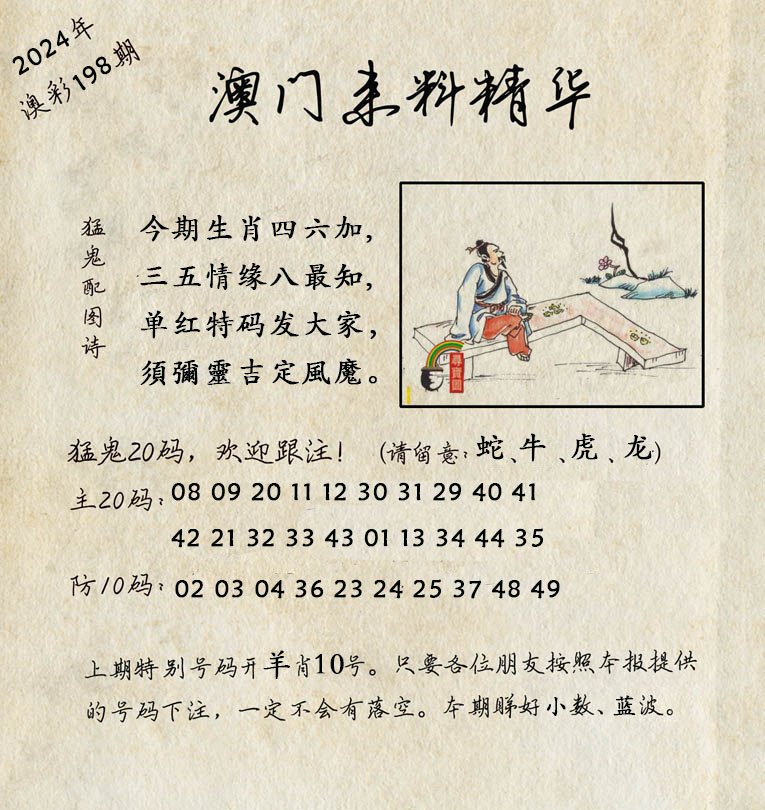 2024年
澳彩198期
澳门来料精华
猛鬼配图诗
今期生肖四六加，
三五情缘八最知，
单红特码发大家，
須彌靈吉定風魔。
尋寶圖
猛鬼20码，欢迎跟注！（请留意：蛇、牛、虎、龙）
主20码：08 09 20 11 12 30 31 29 40 41
42 21 32 33 43 01 13 34 44 35
防10码：02 03 04 36 23 24 25 37 48 49
上期特别号码开羊肖10号。只要各位朋友按照本报提供
的号码下注，一定不会有落空。本期睇好小数、蓝波。